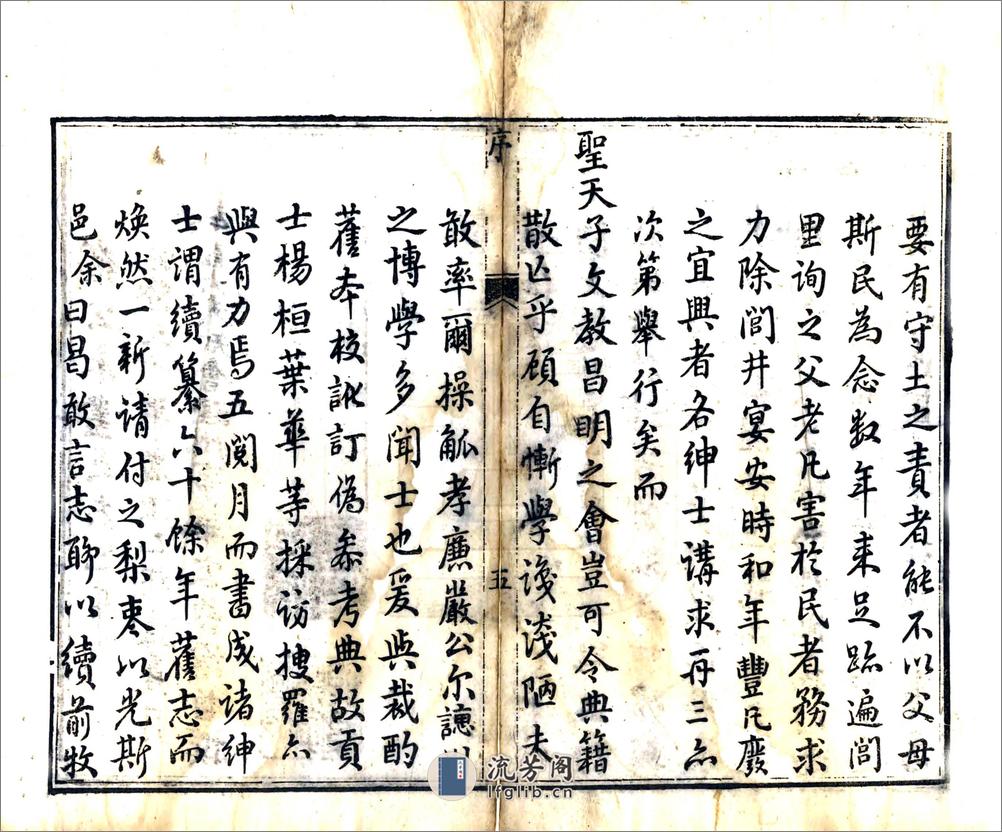 要有守土之責者能不以父母
斯民為念数年来足跡遍閭
里詢之父老凡害於民者務求
力除閭井宴安時和年豐凡廢
之宜興者各紳士講求再三亦
次第舉行矣而
聖天子文教昌明之會豈可令典籍
散亾乎顧自慚學識淺陋夫
序
五
敢率爾操觚孝廉嚴公尔譓
之博學多聞士也爰與裁酌
舊本校訛訂偽叅考典故貢
士楊桓葉華等採訪捜羅亦
與有力焉五閱月而書成諸紳
士謂續纂六十餘年舊志而
煥然一新請付之梨枣以光斯
邑余曰昌敢言志聊以續前牧
流芳阁
lfglib.cn